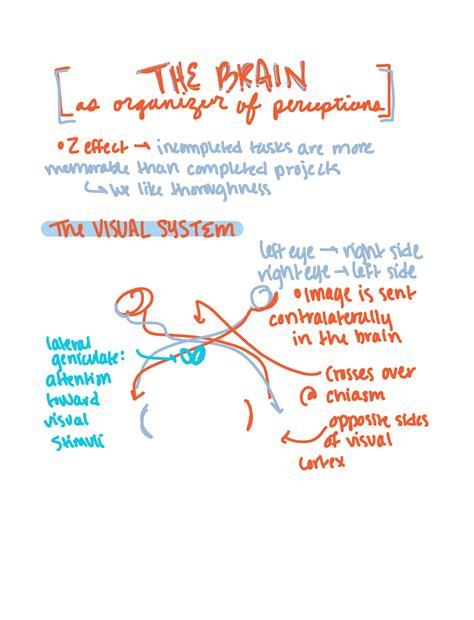 THE BRAIN
as organizer of perceptions
• Z effect → incompleted tasks are more
memorable than completed projects
↳ We like thoroughness
The VISUAL SYSTEM
left eye → right side
right eye → left side
• Image is sent
contralaterally
in the brain
lateral
geniculate:
attention
toward
visual
stimuli
Crosses over
@ chiasm
opposite sides
of visual
cortex